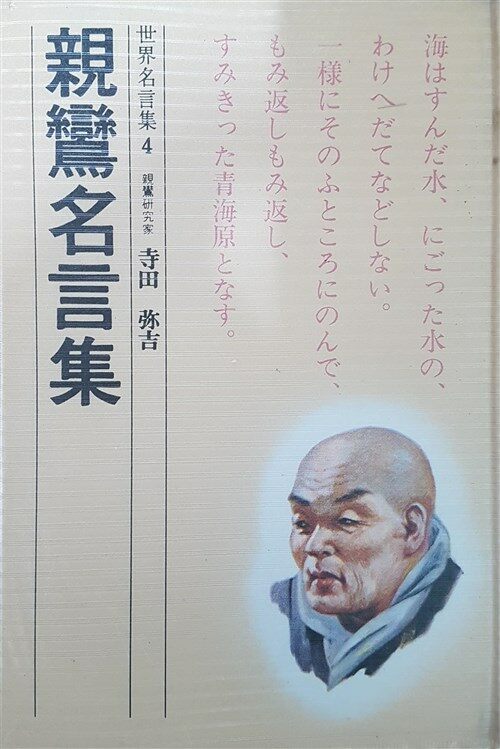 海はすんだ水、にごった水の、
わけへだてなどしない。
一様にそのふところにのんで、
もみ返しもみ返し、
すみきった青海原となす。
世界名言集4 親鸞研究家 寺田 弥吉
親鸞名言集